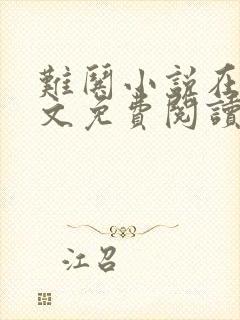 難鬧小說在
文免費閱讀
江召